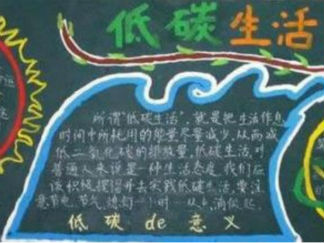 低碳生活
所谓“低碳生活”，就是把生活作息
时间中所耗用的能量尽量减少，从而减
低二氧化碳的排放量。低碳生活，对
普通人来说是一种生活态度，我们应
该积极提倡并去实践低碳生活，要注
意节电、节气、熄灯一小时……从
滴做起。
低碳de意义